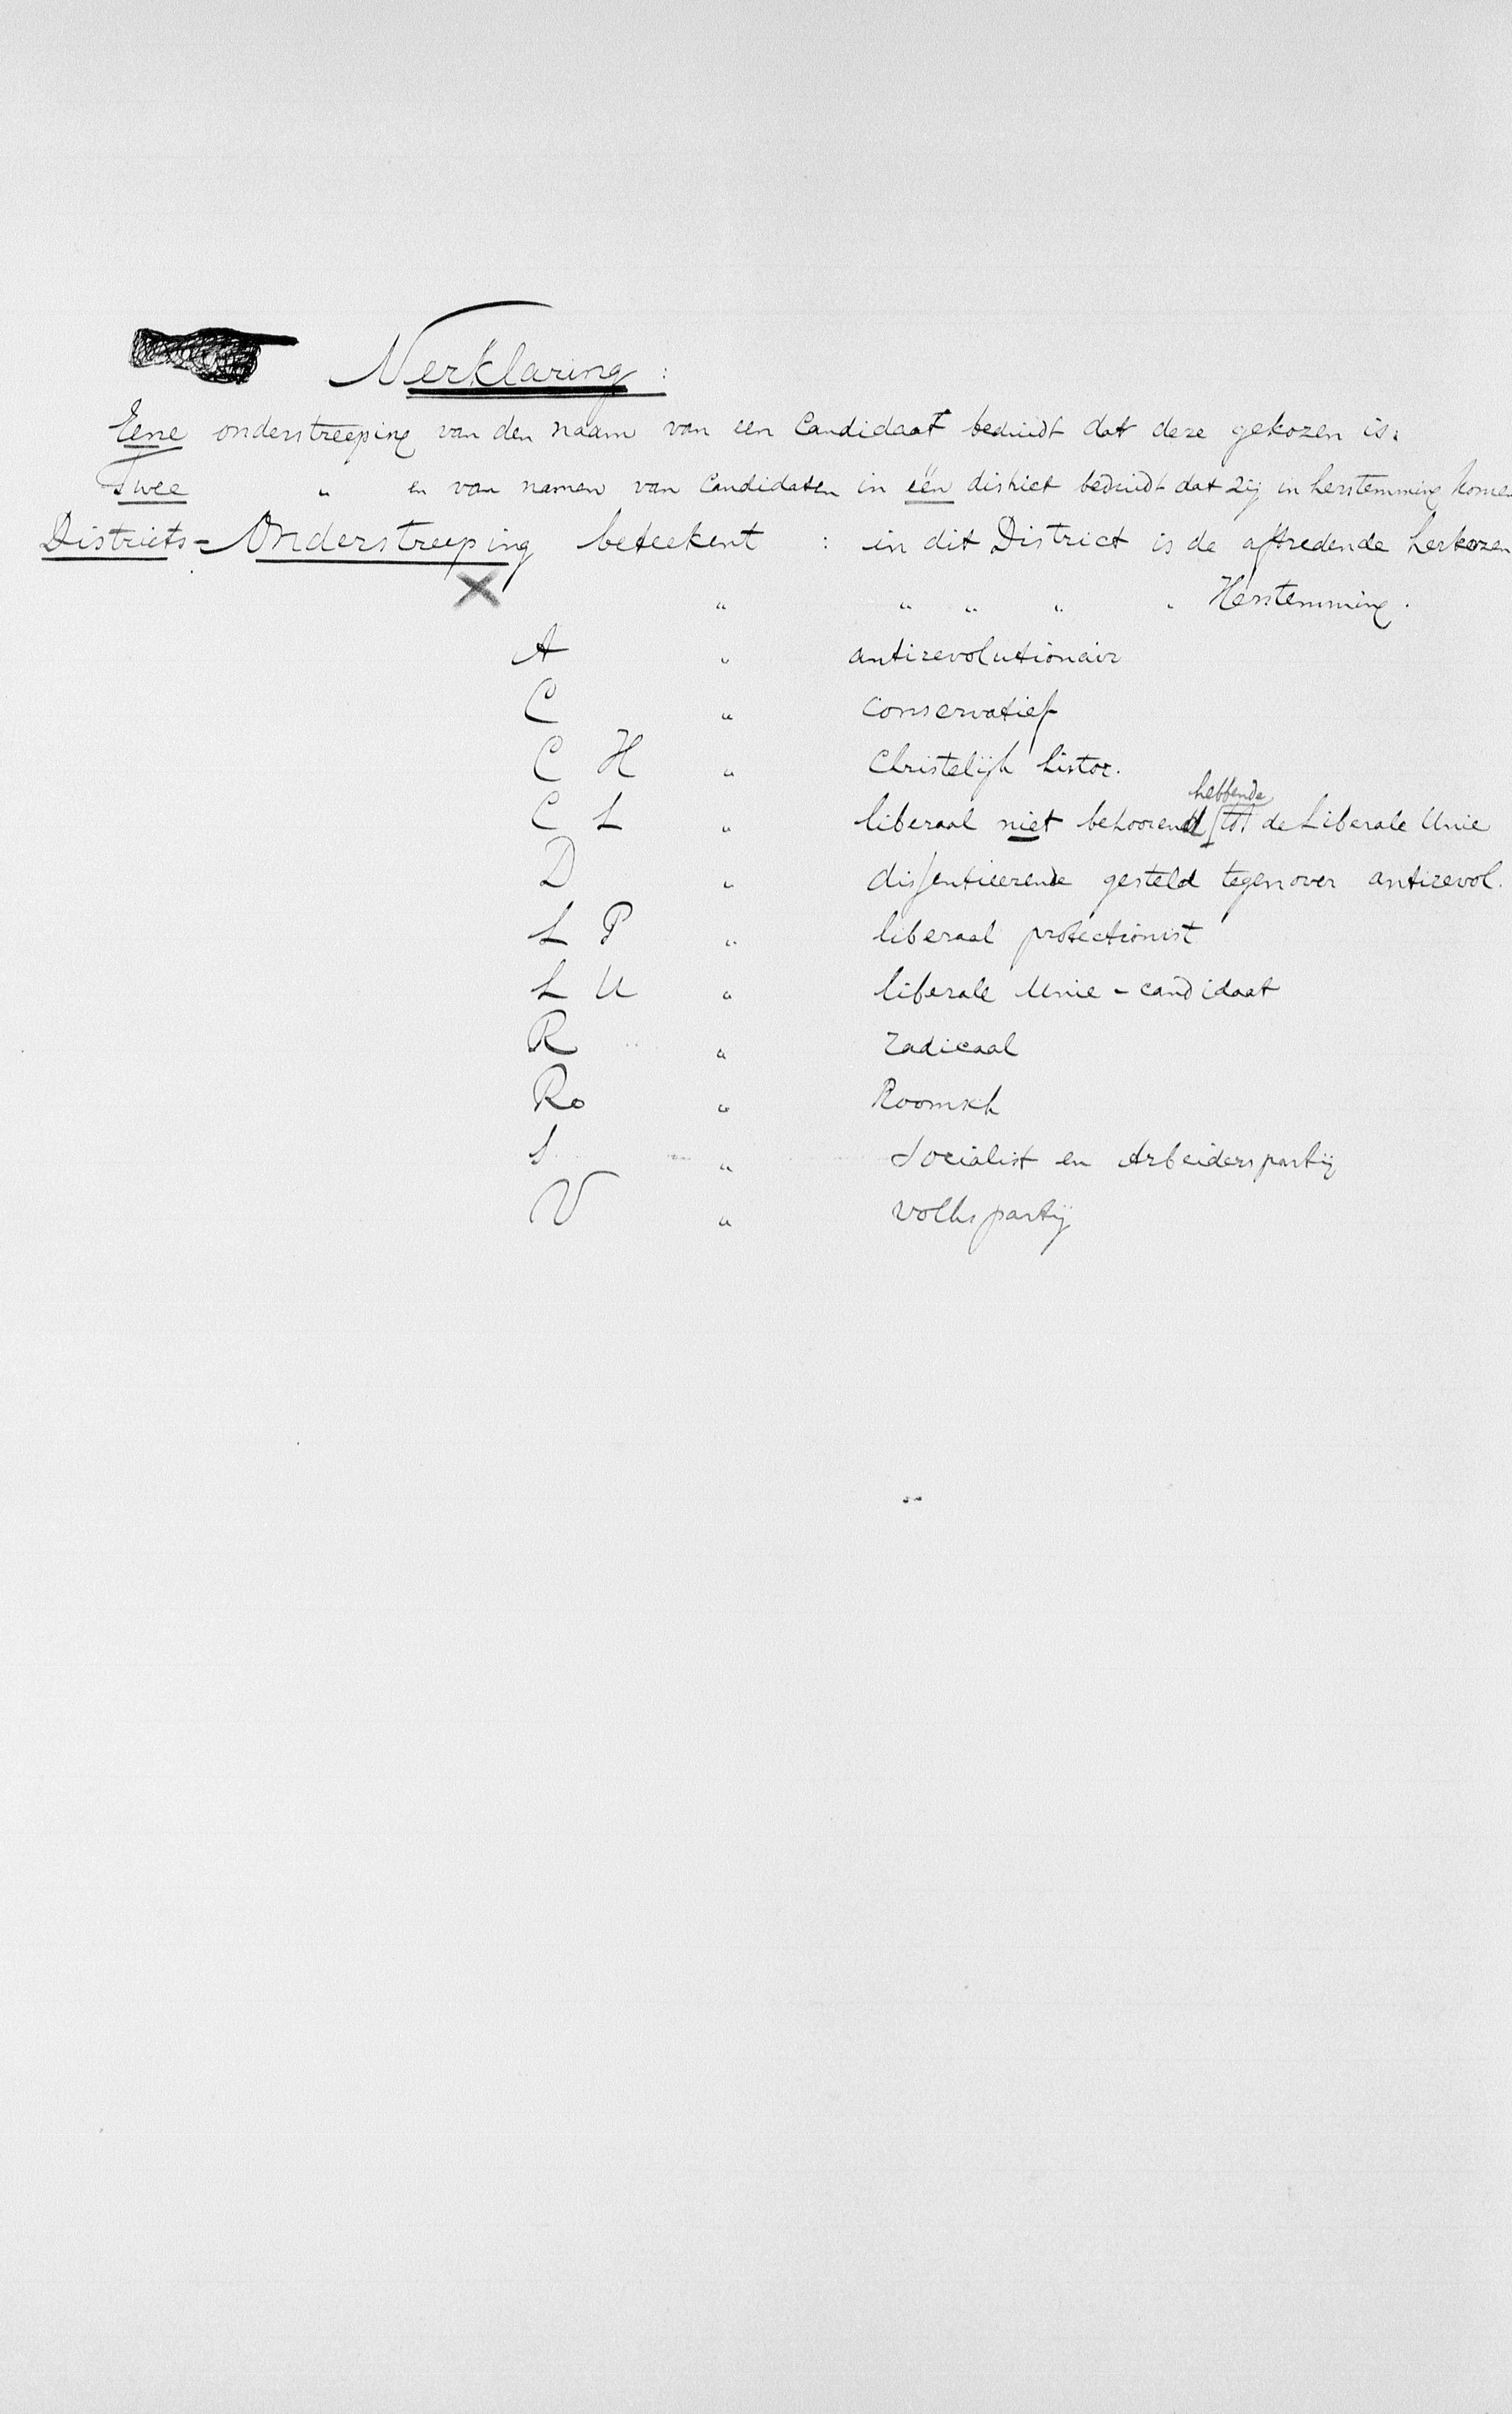 Verklaring :
Eene onderstreeping van den naam van een Candidaat beduidt dat deze gekozen is.
Twee " en van namen van Candidaten in één district beduidt dat zij in herstemming komen
Districts-Onderstreeping beteekent : in dit District is de aftredende herkozen
X " " " " " Herstemming.
A " antirevolutionair
C " Conservatief
C H " Christelijk histor.
hebbende
C L " liberaal niet behoorend [tot de Liberale Unie
D " dissentieerende gesteld tegenover antirevol.
L P " liberaal protectionist
L U " liberale Unie - candidaat
R " radicaal
Ro " Roomsch
S " Socialist en Arbeiderspartij
V " Volkspartij